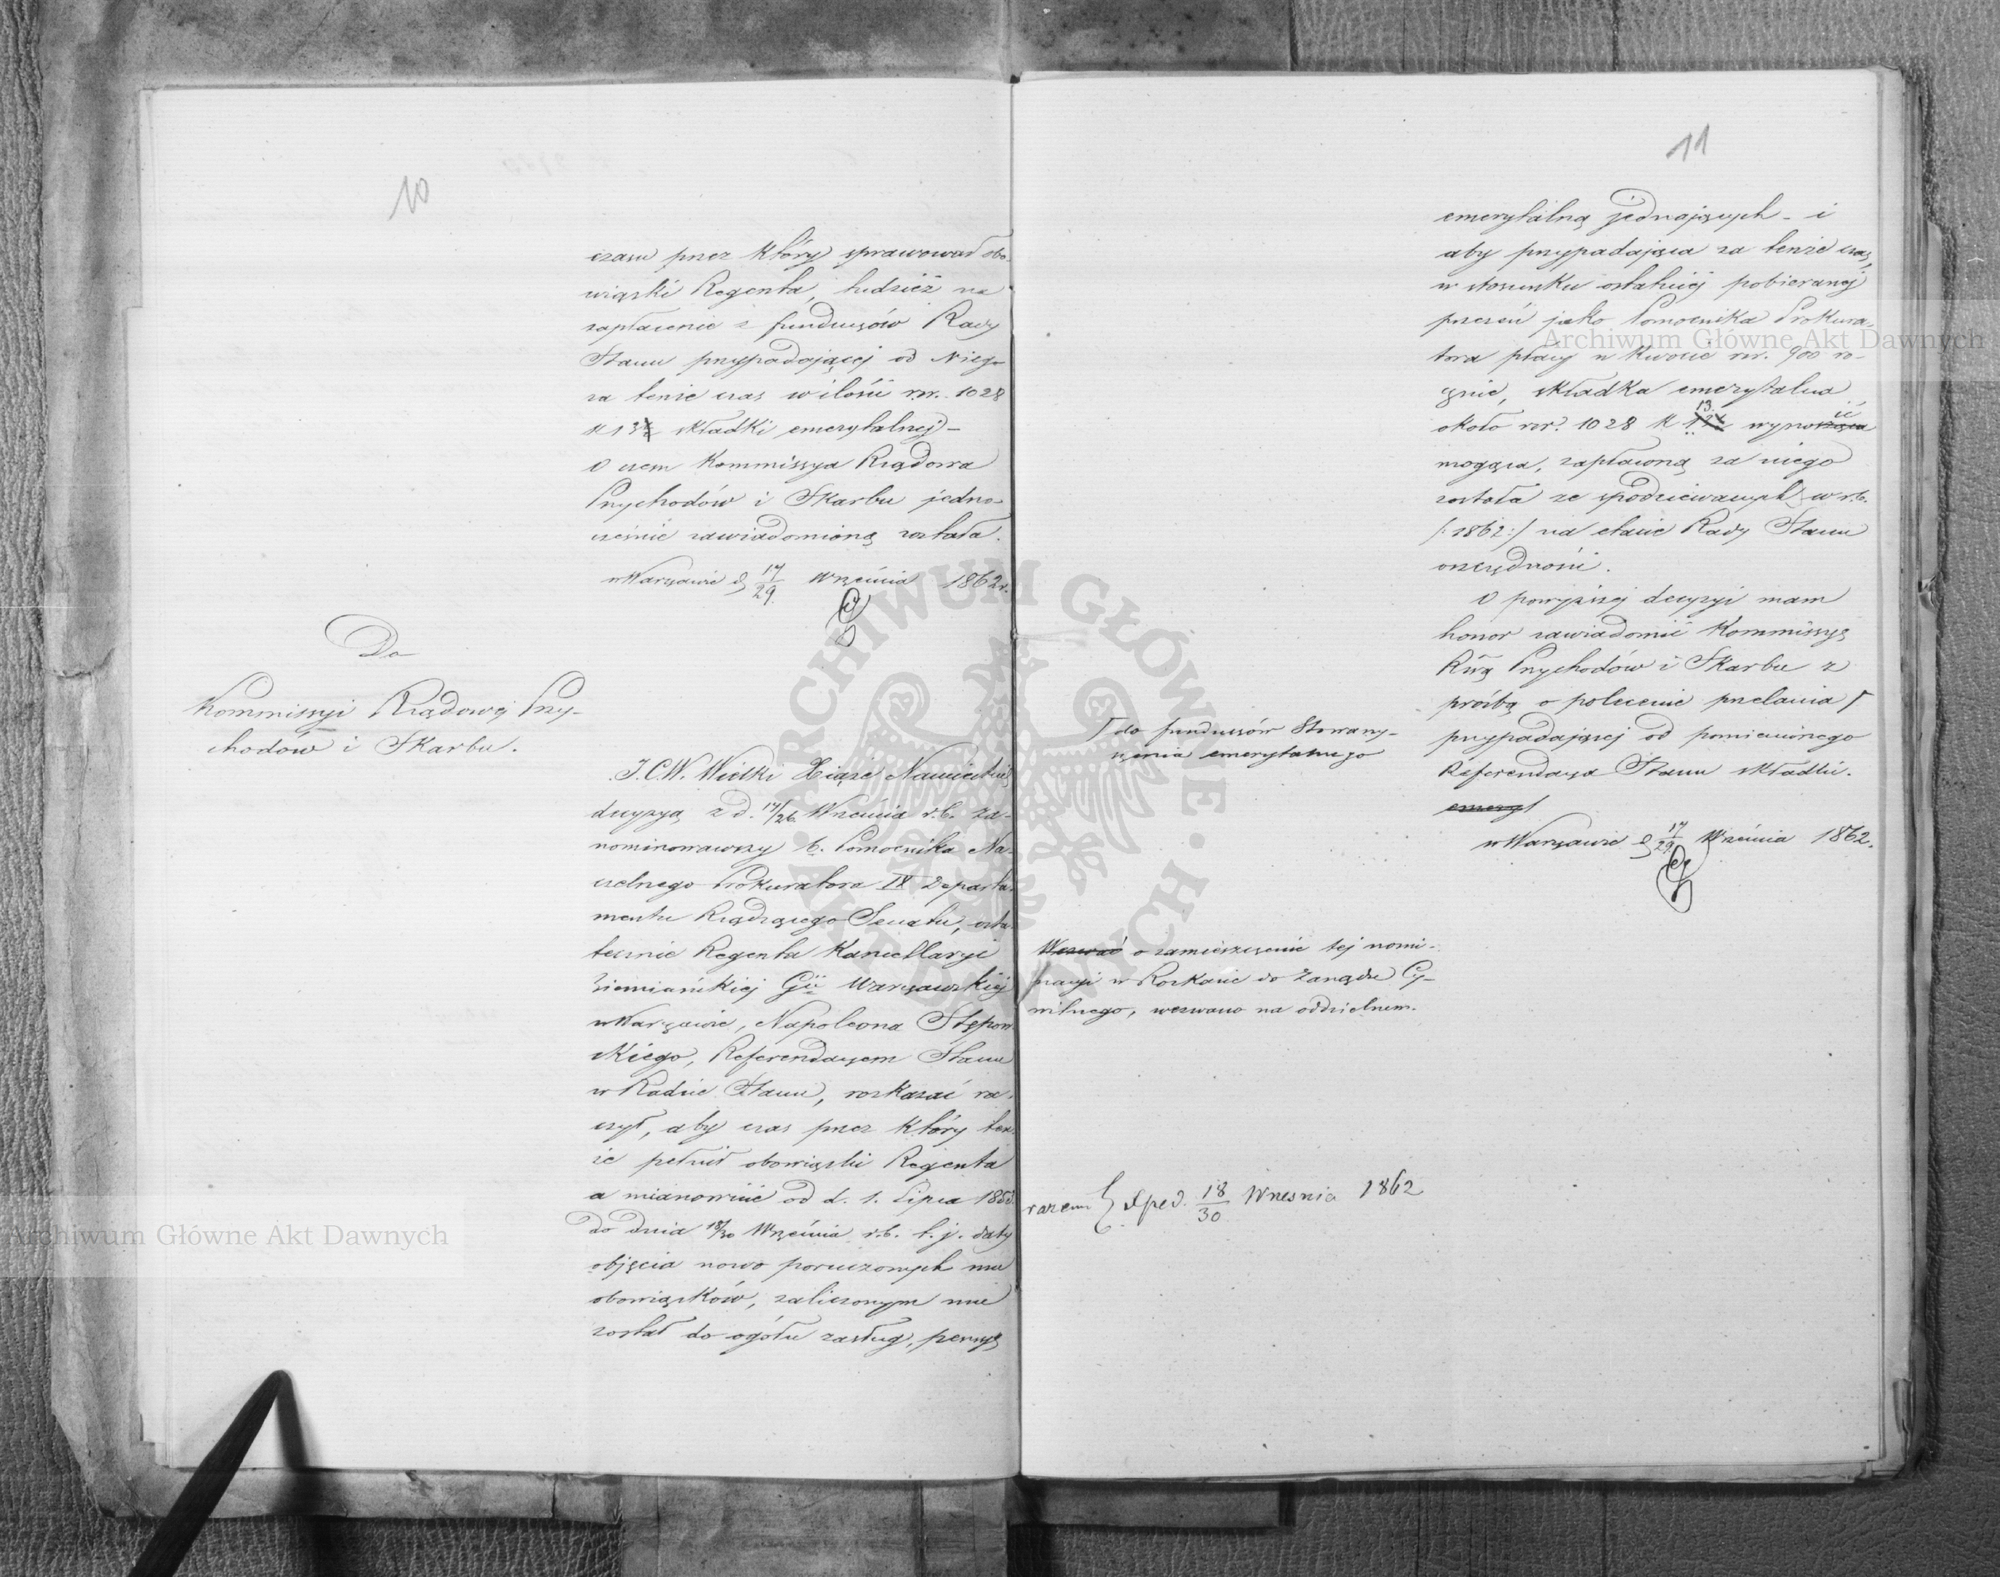 10
czasu przez który sprawował obo-
wiązki Regenta, tudzież na
zapłacenie z funduszów Rady
Stanu przypadającej od Niego
za tenże czas w ilości rsr. 1028
k 13 składki emerytalnej -
O czem Kommissya Rządowa
Przychodów i Skarbu jedno-
cześnie zawiadomioną została.
w Warszawie d 17/29 Września 1862 r.
Do
Kommissyi Rządowej Przy-
chodów i Skarbu.
J.C.W. Wielki Xiąże Namiestnik
decyzyą z d. 14/26 Września r.b. za-
nominowawszy b. Pomocnika Na-
czelnego Prokuratora IX Departa-
mentu Rządzącego Senatu, osta-
tecznie Regenta Kancellaryi
Ziemiańskiej Gii Warszawskiej
w Warszawie, Napoleona Stępow-
skiego, Referendarzem Stanu
w Radzie Stanu, rozkazać ra-
czył, aby czas przez który ten-
że pełnił obowiązki Regenta
a mianowicie od d. 1. Lipca
do dnia 18/30 Września r.b. t.j. daty
objęcia nowo poruczonych mu
obowiązków, zaliczonym mu
został do ogółu zasług, pensyą
11
emerytalną jednających - i
aby przypadająca za tenże czas,
w stosunku ostatniej pobieranej
przezeń jako Pomocnika Prokura-
tora płacy w kwocie rsr. 900 ro-
cznie, składka emerytalna
około rsr. 1028 k 13 wynosić
mogąca, zapłaconą za niego
została ze spodziewanych w r.b.
/:1862:/ na etacie Rady Stanu
oszczędności.
O powyższej decyzyi mam
honor zawiadomić Kommissyę
Rwą Przychodów i Skarbu z
prośbą o polecenie przelania Γ
przypadającej od pomienionego
Referendarza Stanu składki.
emeryt
w Warszawie d 17/29 Września 1862.
Γ do funduszów Stowarzy-
szenia emerytalnego
Wezwać o zamieszczenie tej nomi-
nacyi w Rozkazie do Zarządu Cy-
wilnego, wezwano na oddzielnem.
razem { Exped. 18/30 Wrzesnia 1862
Archiwum Główne Akt Dawnych
Archiwum Główne Akt Dawnych
ARCHIWUM GŁÓWNE AKT DAWNYCH